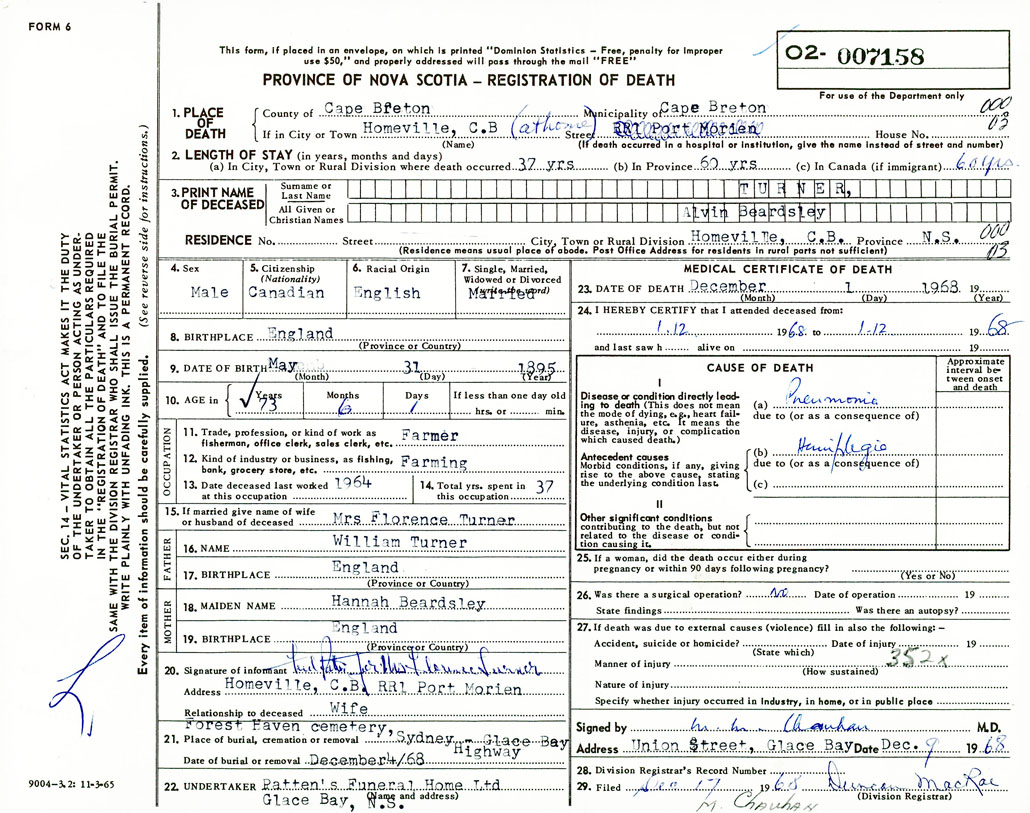 FORM 6
This form, if placed in an envelope, on which is printed "Dominion Statistics – Free, penalty for improper
use $50," and properly addressed will pass through the mail "FREE"
O2- 007158
PROVINCE OF NOVA SCOTIA – REGISTRATION OF DEATH
For use of the Department only
1. PLACE OF DEATH
County of Cape Breton Municipality of Cape Breton 000
If in City or Town Homeville, C.B (at home) Street RR1 Port Morien House No. 03
(Name) (If death occurred in a hospital or institution, give the name instead of street and number)
2. LENGTH OF STAY (in years, months and days)
(a) In City, Town or Rural Division where death occurred 37 yrs (b) In Province 60 yrs (c) In Canada (if immigrant) 60 yrs.
3. PRINT NAME OF DECEASED
Surname or Last Name TURNER,
All Given or Christian Names Alvin Beardsley
RESIDENCE No. Street City, Town or Rural Division Homeville, C.B. Province N.S. 000 03
(Residence means usual place of abode. Post Office Address for residents in rural parts not sufficient)
4. Sex
Male
5. Citizenship
(Nationality)
Canadian
6. Racial Origin
English
7. Single, Married,
Widowed or Divorced
(write the word)
Married
8. BIRTHPLACE England
(Province or Country)
9. DATE OF BIRTH May 31 1895
(Month) (Day) (Year)
10. AGE in Years Months Days If less than one day old
73 6 1 hrs. or min.
OCCUPATION
11. Trade, profession, or kind of work as
fisherman, office clerk, sales clerk, etc. Farmer
12. Kind of industry or business, as fishing,
bank, grocery store, etc. Farming
13. Date deceased last worked 1964
at this occupation
14. Total yrs. spent in
this occupation 37
15. If married give name of wife
or husband of deceased Mrs Florence Turner
FATHER
16. NAME William Turner
17. BIRTHPLACE England
(Province or Country)
MOTHER
18. MAIDEN NAME Hannah Beardsley
19. BIRTHPLACE England
(Province or Country)
20. Signature of informant for Mrs Florence Turner
Address Homeville, C.B. RR1 Port Morien
Relationship to deceased Wife
Forest Haven cemetery,
21. Place of burial, cremation or removal Sydney - Glace Bay
Highway
Date of burial or removal December 4/68
22. UNDERTAKER Patten's Funeral Home Ltd
Glace Bay, N.S.
(Name and address)
MEDICAL CERTIFICATE OF DEATH
23. DATE OF DEATH December 1 1968 19
(Month) (Day) (Year)
24. I HEREBY CERTIFY that I attended deceased from:
1.12 1968 to 1-12 1968
and last saw h alive on 19
CAUSE OF DEATH
Approximate interval between onset and death
I
Disease or condition directly leading to death (This does not mean the mode of dying, e.g., heart failure, asthenia, etc. It means the disease, injury, or complication which caused death.)
(a) Pneumonia
due to (or as a consequence of)
Antecedent causes
Morbid conditions, if any, giving rise to the above cause, stating the underlying condition last.
(b) Hemiplegia
due to (or as a consequence of)
(c)
II
Other significant conditions
contributing to the death, but not related to the disease or condition causing it.
25. If a woman, did the death occur either during
pregnancy or within 90 days following pregnancy?
(Yes or No)
26. Was there a surgical operation? No Date of operation 19
State findings Was there an autopsy?
27. If death was due to external causes (violence) fill in also the following:–
Accident, suicide or homicide? Date of injury 19
(State which)
Manner of injury 352x
(How sustained)
Nature of injury
Specify whether injury occurred in industry, in home, or in public place
Signed by M. M. Chauhan M.D.
Address Union Street, Glace Bay Date Dec. 9 1968
28. Division Registrar's Record Number
29. Filed Dec 17 1968 Duncan MacRae
(Division Registrar)
M. Chauhan
SEC. 14 – VITAL STATISTICS ACT MAKES IT THE DUTY
OF THE UNDERTAKER OR PERSON ACTING AS UNDER-
TAKER TO OBTAIN ALL THE PARTICULARS REQUIRED
IN THE "REGISTRATION OF DEATH" AND TO FILE THE
SAME WITH THE DIVISION REGISTRAR WHO SHALL ISSUE THE BURIAL PERMIT.
WRITE PLAINLY WITH UNFADING INK. THIS IS A PERMANENT RECORD.
Every item of information should be carefully supplied. (See reverse side for instructions.)
9004-3.2: 11-3-65